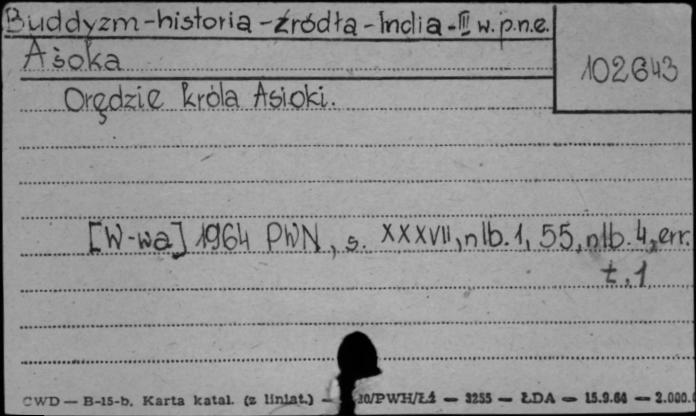 Buddyzm-historia-źródła-India-III w. p.n.e.
Aśoka
102643
Orędzie króla Asioki.
[W-wa] 1964 PWN, s. XXXVII, nlb. 1, 55, nlb. 4, err.
t. 1
CWD — B-15-b. Karta katal. (z liniat.) — 30/PWH/Łź — 3255 — ŁDA — 15.9.64 — 2.000.